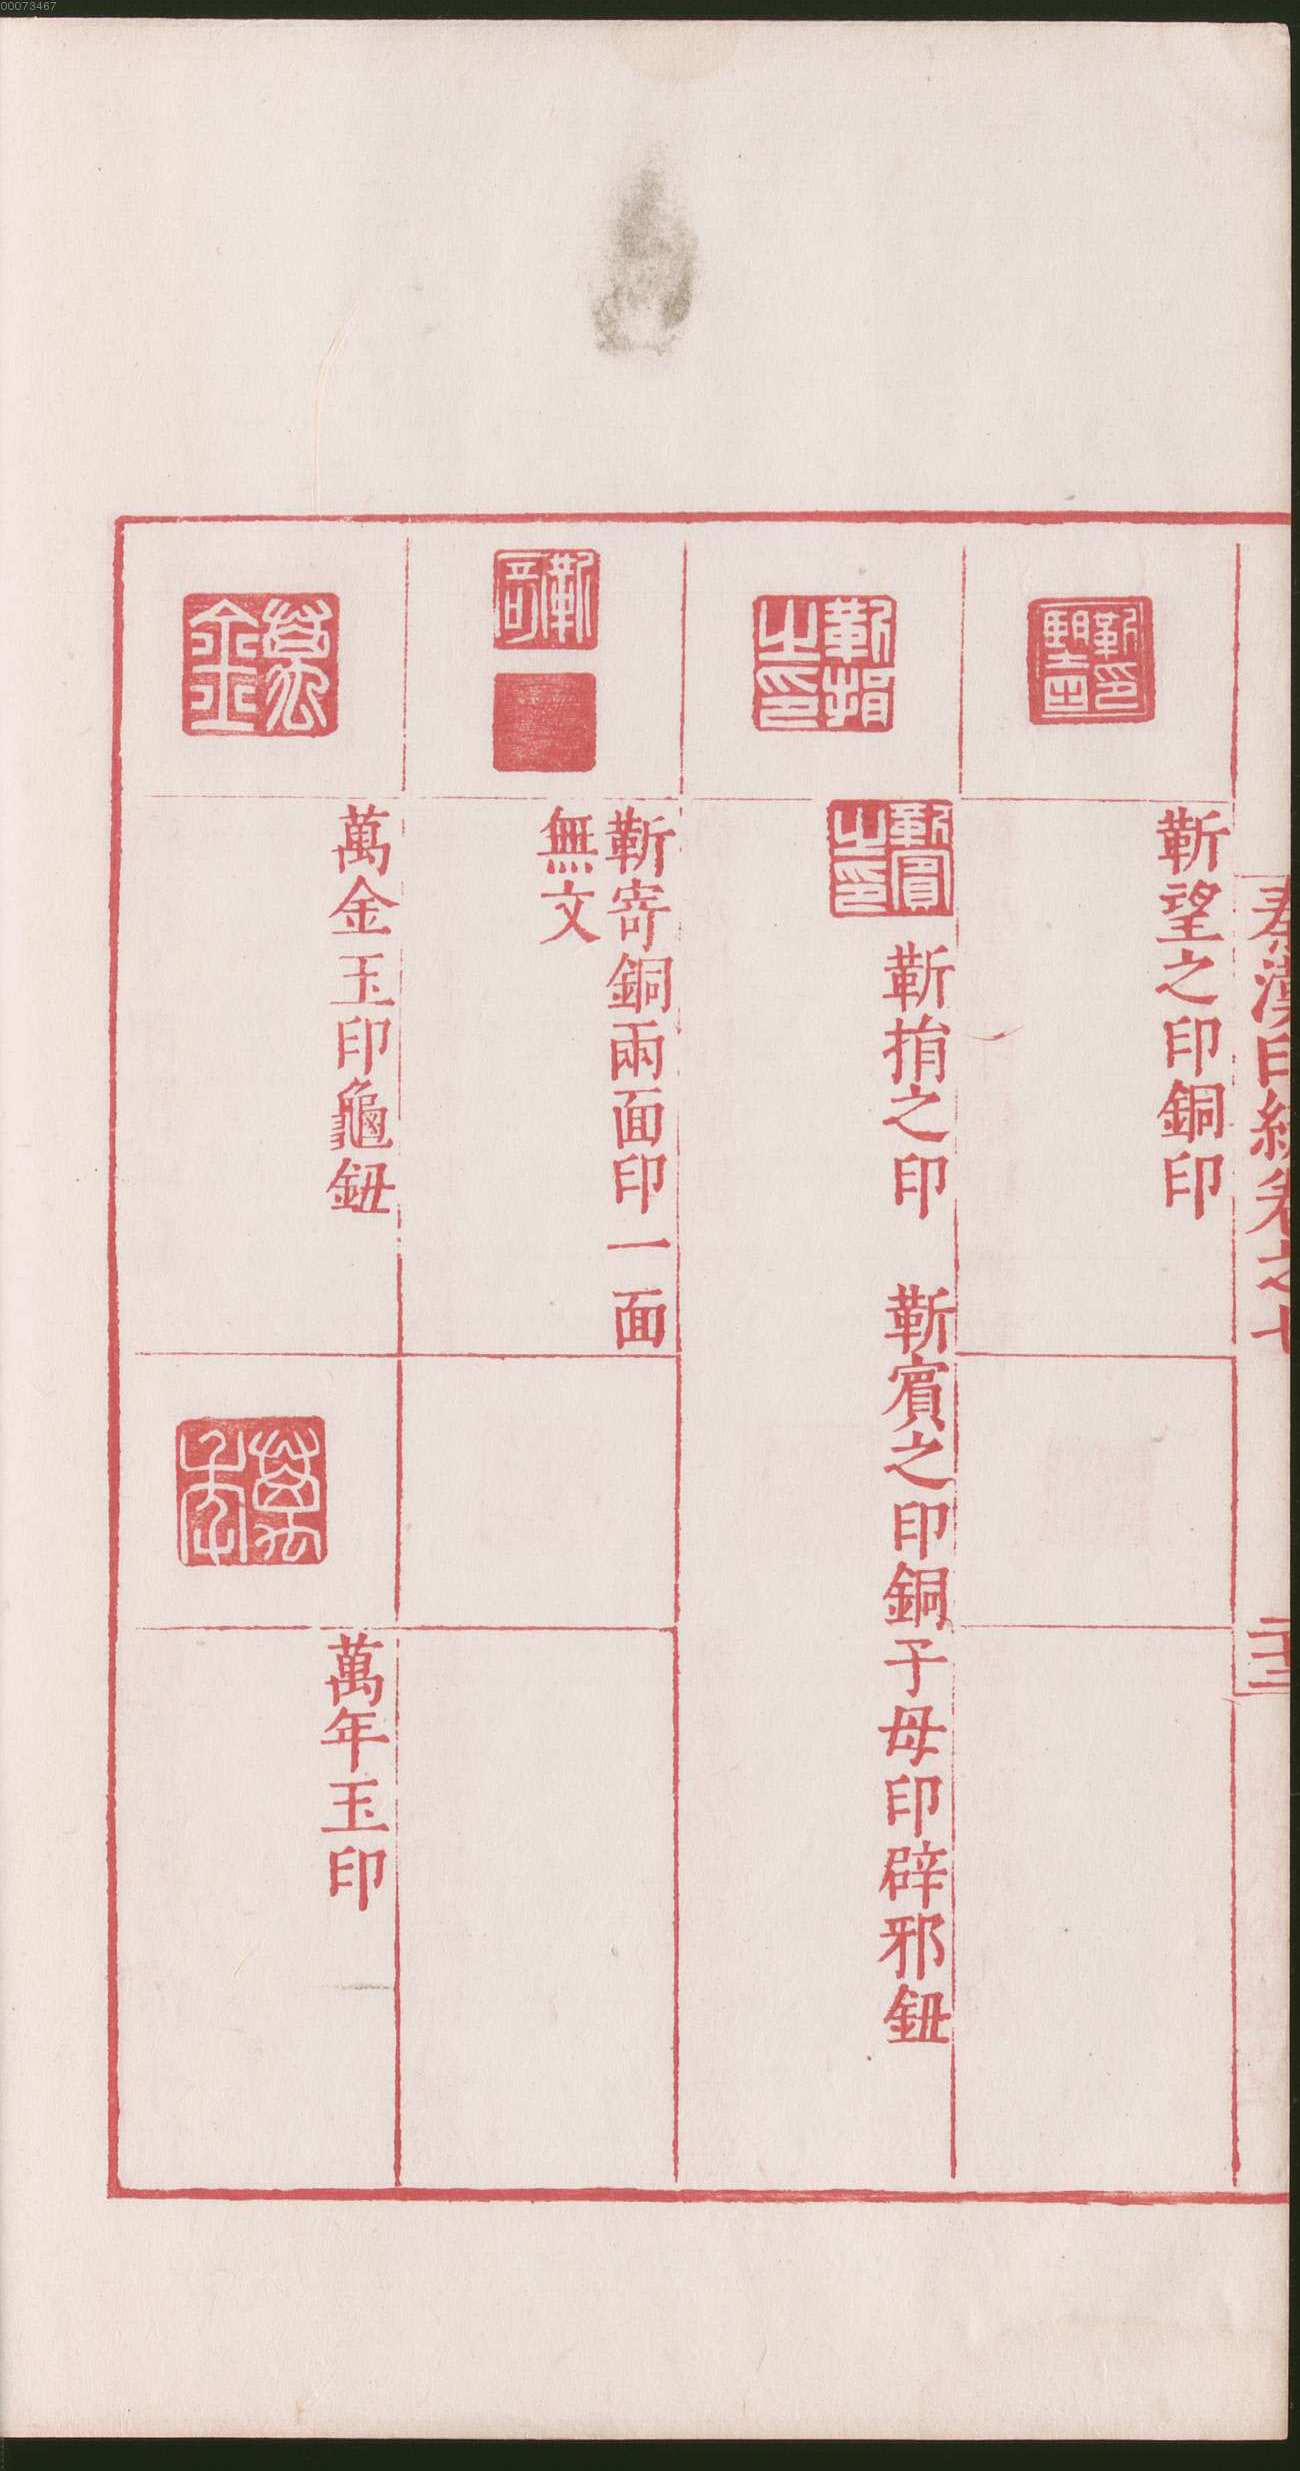 秦漢印統卷之七
二十三
靳望之印銅印
靳捐之印 靳賓之印銅子母印辟邪鈕
靳寄銅兩面印一面
無文
萬金玉印龜鈕
萬年玉印
00073467